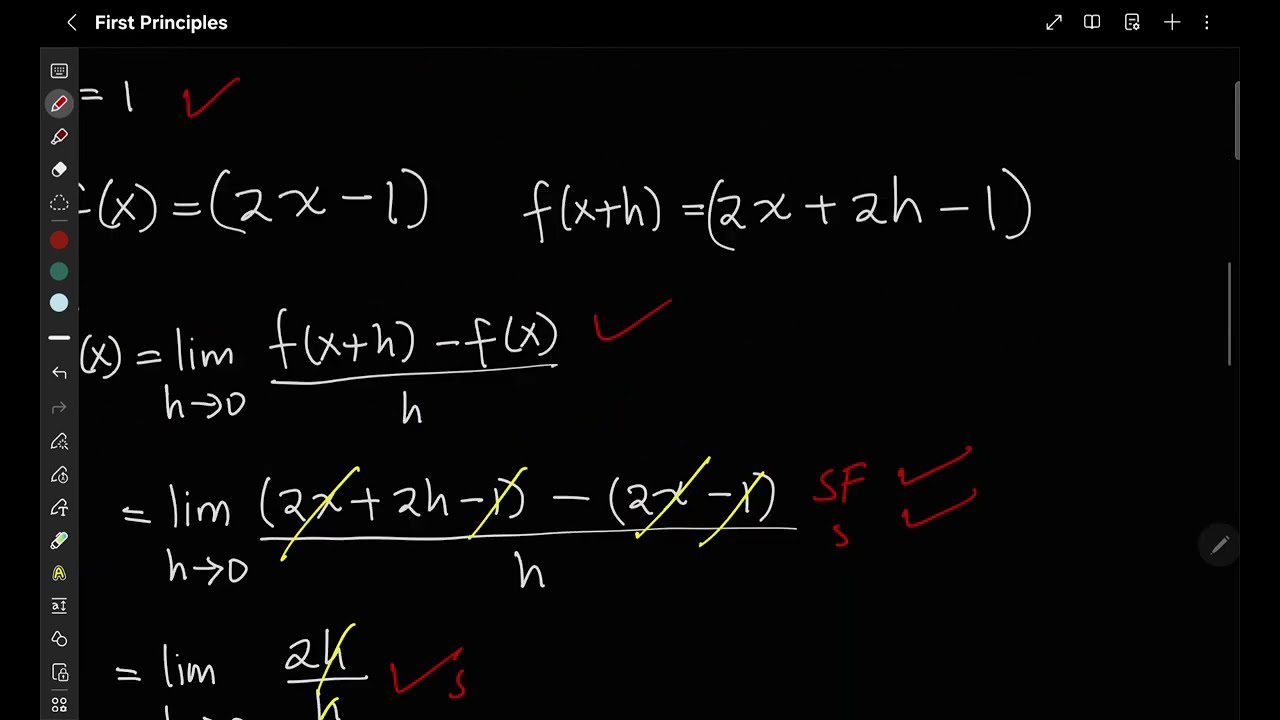 First Principles
= 1 ✓
f(x) = (2x − 1) f(x+h) = (2x + 2h − 1)
(x) = lim f(x+h) − f(x) ✓
h→0 h
= lim (2x + 2h − 1) − (2x − 1) SF ✓
s ✓
h→0 h
= lim 2h ✓ s
h